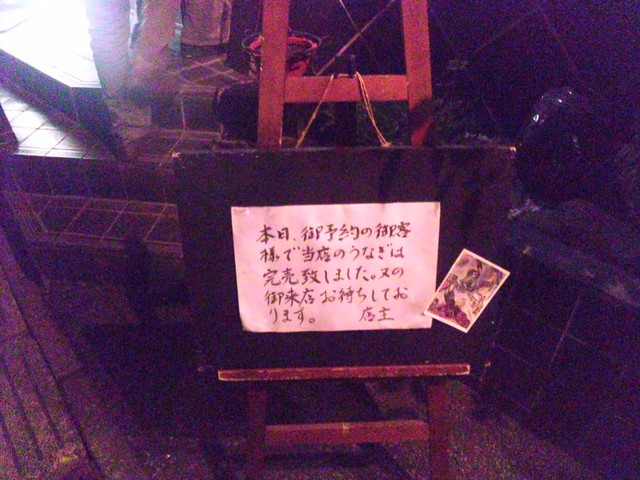 本日、御予約の御客
様で当店のうなぎは
完売致しました。又の
御来店お待ちしてお
ります。 店主